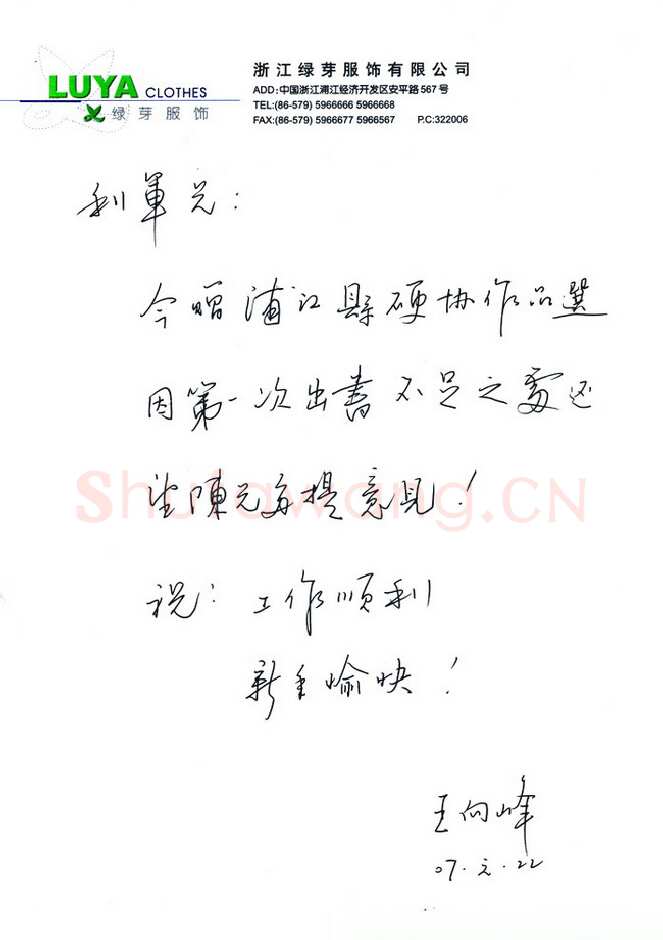 LUYA CLOTHES
绿芽服饰
浙江绿芽服饰有限公司
ADD:中国浙江浦江经济开发区安平路567号
TEL:(86-579) 5966666 5966668
FAX:(86-579) 5966677 5966567 P.C:322006
利軍兄:
今赠浦江縣硬协作品選
因第一次出書不足之處还
望陳兄多提意見!
祝:工作順利
新年愉快!
王向峰
07.元.22
Shufawang.CN